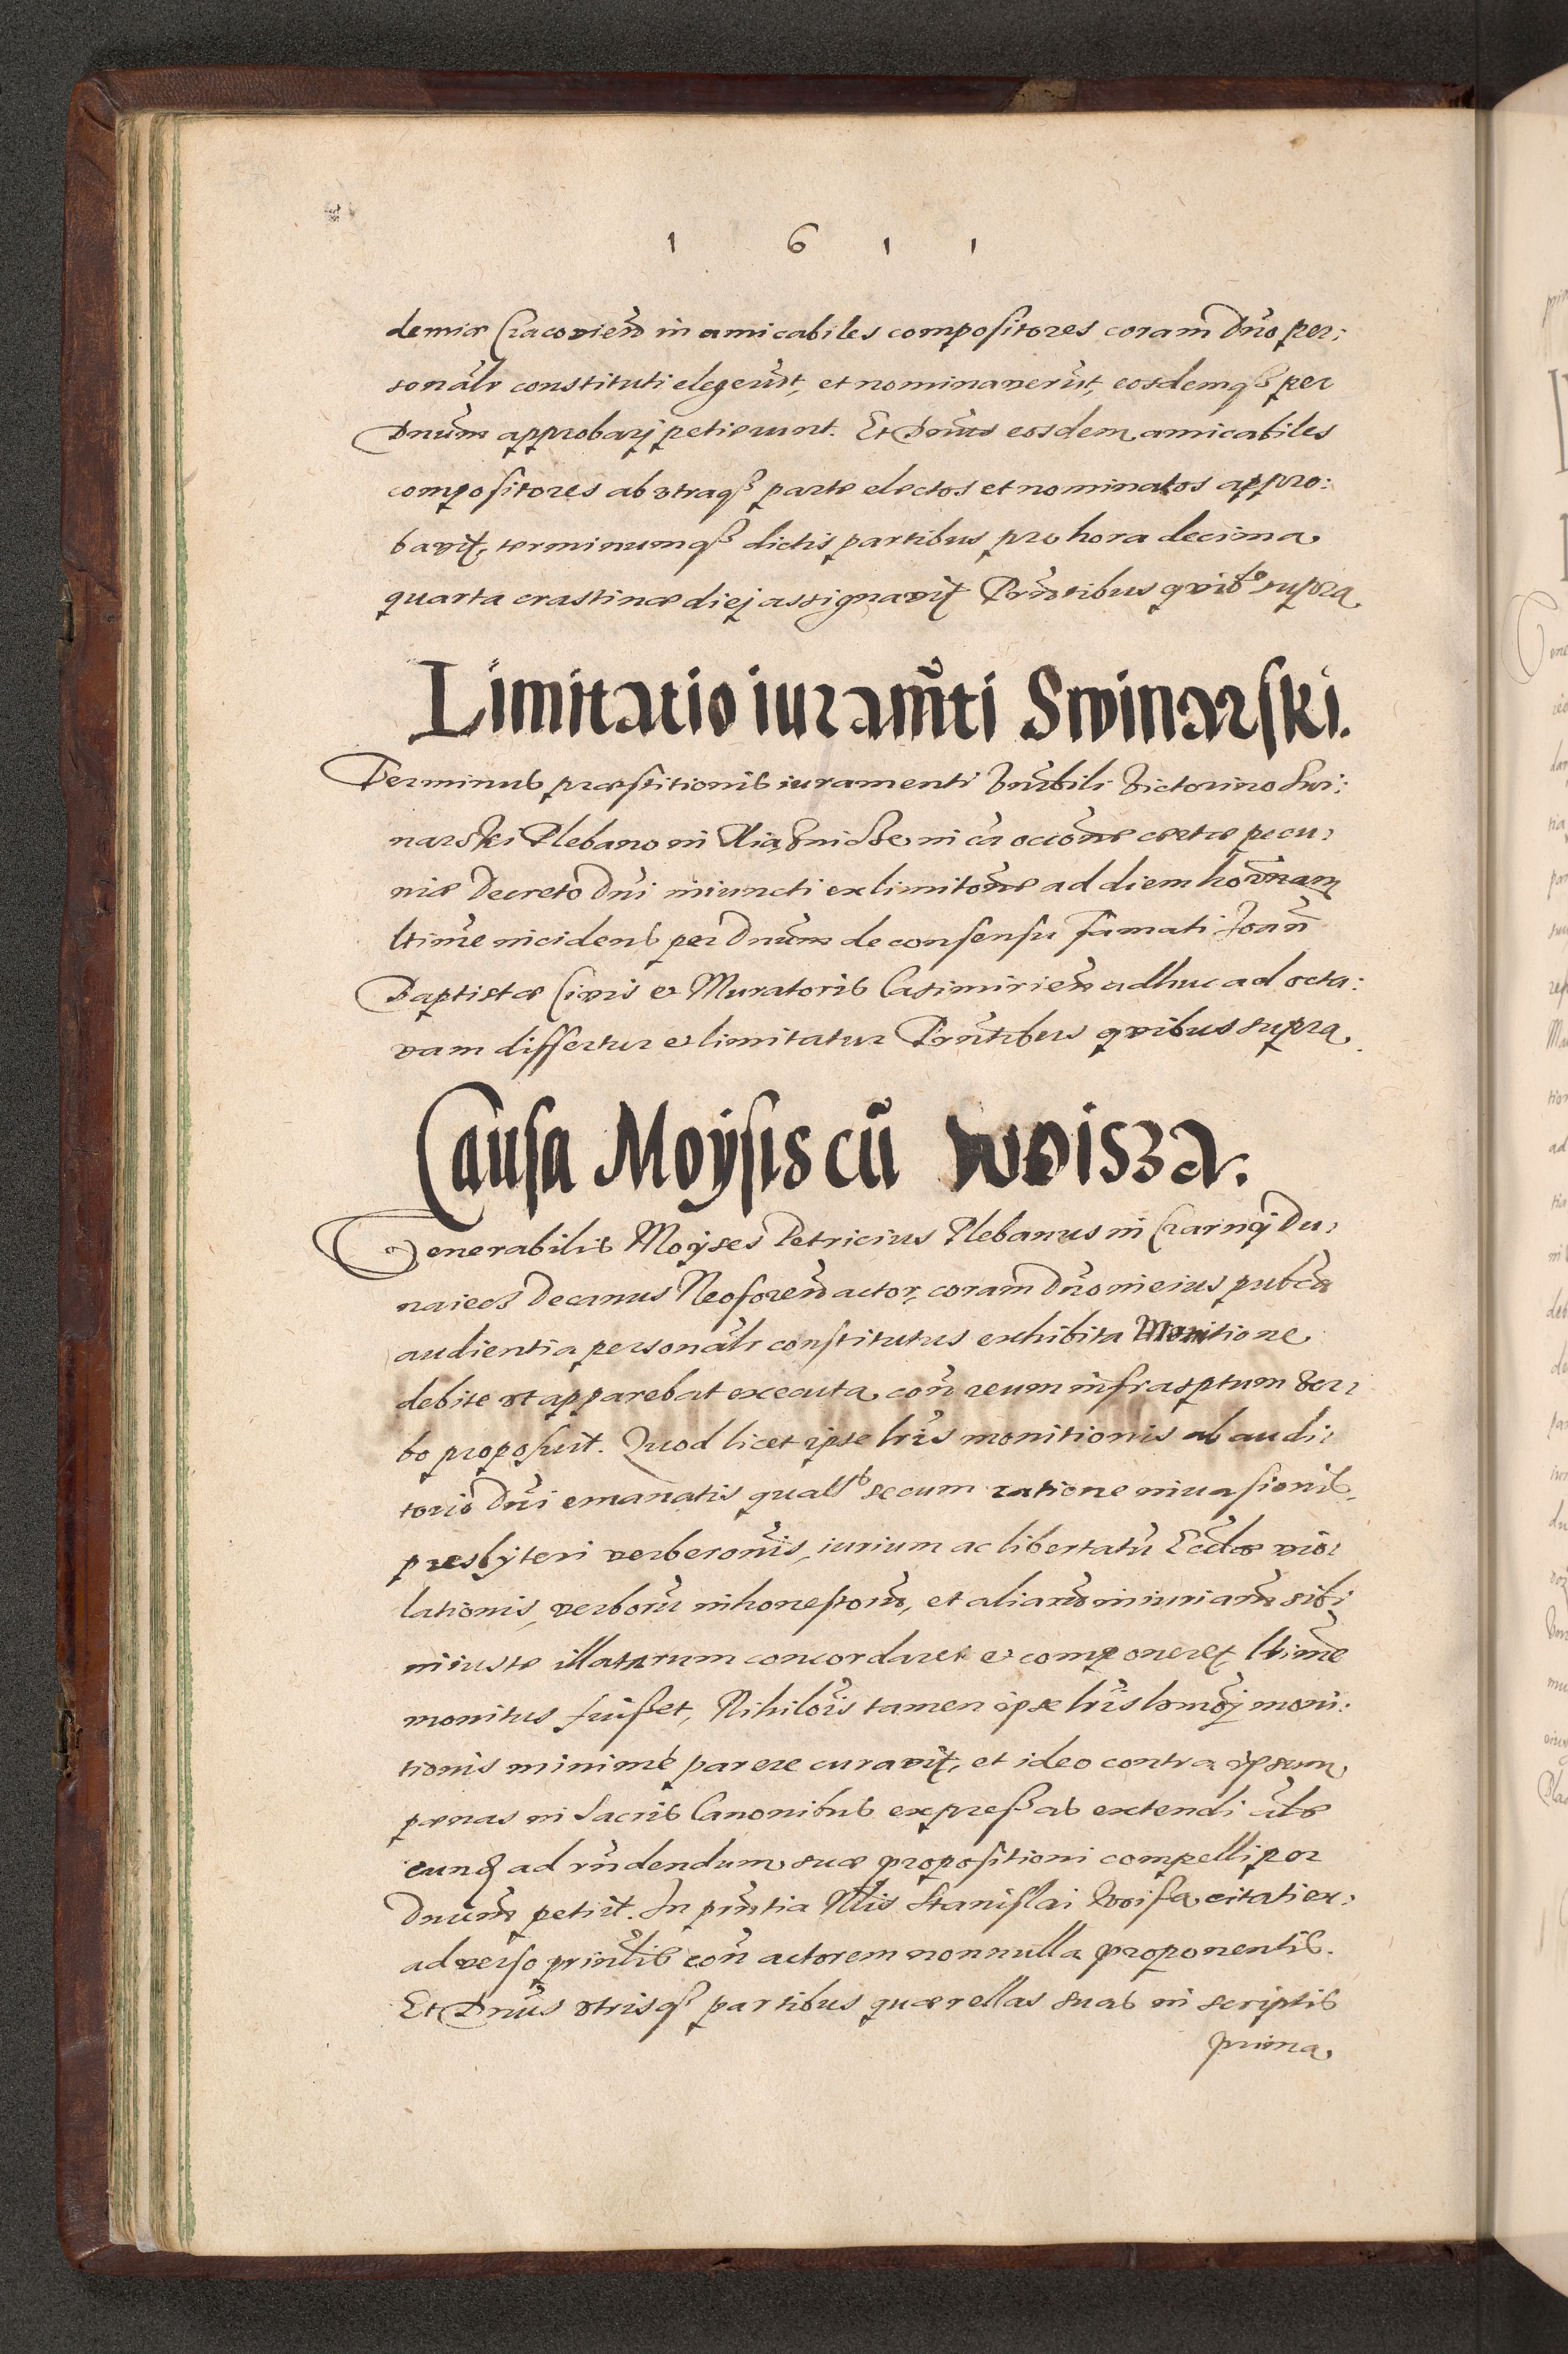 1 6 1 1
demiæ Cracovien̄ in amicabiles compositores coram Dn̄o per:
sonal̄r constituti elegerūt, et nominaverūt, eosdemq̃ per
Dnūm approbarj petierunt. Et Dnūs eosdem amicabiles
compositores ab vtraq̃ parte electos et nominatos appro:
bavit, terminumq̃ dictis partibus pro hora decima
quarta crastinæ diej assignavit Prn̄tibus quib⁹ supra
Limitatio iuram̄ti Swinarski.
Terminus præstitionis iuramenti Vnrbili Victorino Swi:
narski Plebano in in cā occōne certæ pecu:
niæ Decreto Dn̄i iniuncti ex limitōne ad diem hodiernam
ltime incidens per Dnūm de consensu famati Joan̄
Baptistæ Civis et Muratoris Casimirien̄ adhuc ad octa:
vam differtur et limitatur Prn̄tibus quibus supra
Causa Moysis cū Woisza.
Venerabilis Moyses Petricius Plebanus in Czarnÿ Du:
naiecz Decanus Neoforen̄ actor, coram Dn̄o in eius publca
audientia personal̄r constitutus exhibita Monitione
debite vt apparebat executa con̄ reum infrasptum ver:
bo proposuit. Quod licet ipse lr̄is monitionis ab audi:
torio Dn̄i emanatis quatts secum ratione invasionis
presbÿteri verberōnis, iurium ac libertatū Eccl̄æ vio:
lationis, verborū inhonestorū, et aliarū iniuriarū sibi
iniuste illatarum concordaret et componeret, ltime
monitus fuisset, Nihilōis tamen ipse lr̄is hmōj moni:
tionis minimè parere curavit, et ideo contra ipsum
pœnas in Sacris Canonibus expressas extendi
eunq̃ ad rn̄dendum suæ propositioni compelli per
Dnūm petiit. In prn̄tia Nblis Stanislai Woisza citati ex
adverso prinl̄is con̄ actorem nonnulla proponentis.
Et Dnūs vtrisq̃ partibus quærellas suas in scriptis
prima